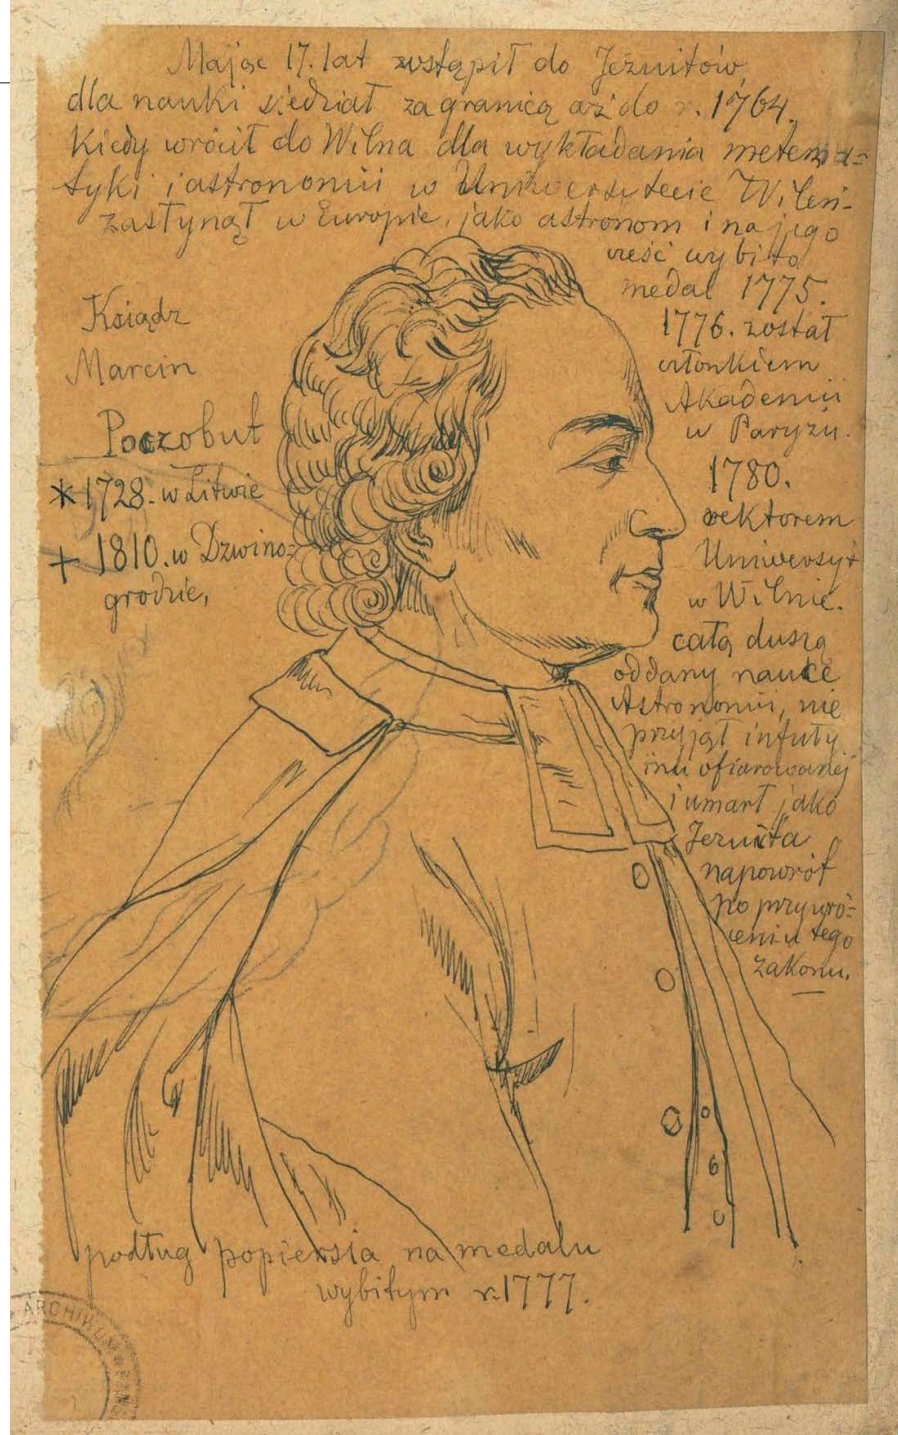 Mając 17. lat wstąpił do Jezuitów,
dla nauki siedział zagranicą aż do r. 1764.
Kiedy wrócił do Wilna dla wykładania matema=
tyki i astronomii w Uniwersytecie Wileń-
zasłynął w Europie, jako astronom i na jego
cześć wybito
medal 1775.
1776. został
członkiem
Akademii
w Paryżu.
1780.
rektorem
Uniwersyt
w Wilnie.
całą duszą
oddany nauce
Astronomii, nie
przyjął infuły
mu ofiarowanej
i umarł jako
Jezuita
napowrót
po przywró=
ceniu tego
zakonu.
Ksiądz
Marcin
Poczobut
* 1728. w Litwie
+ 1810. w Dzwino=
grodzie,
podług popiersia na medalu
wybitym r. 1777.
ARCHIWUM